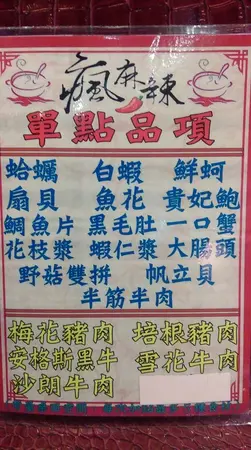 瘋麻辣
單點品項
蛤蠣 白蝦 鮮蚵
扇貝 魚花 貴妃鮑
鯛魚片 黑毛肚 一口蟹
花枝漿 蝦仁漿 大腸頭
野菇雙拼 帆立貝
半筋半肉
梅花豬肉 培根豬肉
安格斯黑牛 雪花牛肉
沙朗牛肉